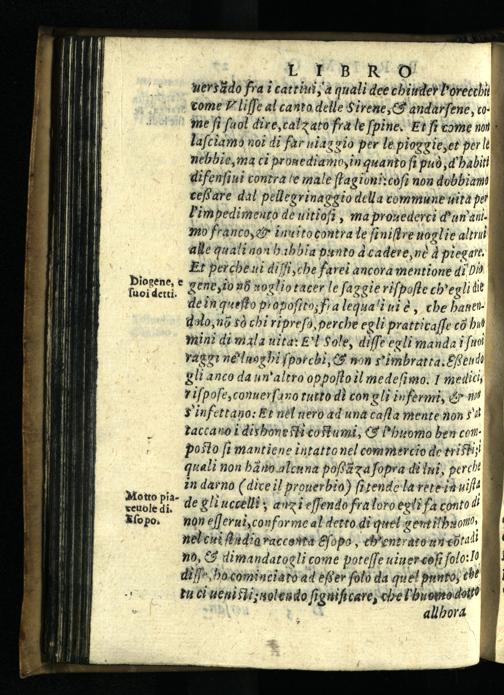 LIBRO
uersãdo fra i cattiui, a quali dee chiuder l'orecchie
come Vlisse al canto delle Sirene, & andarsene, co-
me si suol dire, calzato fra le spine. Et si come non
lasciamo noi di far uiaggio per le pioggie, et per le
nebbie, ma ci prouediamo, in quanto si può, d'habiti
difensiui contra le male stagioni: così non dobbiamo
ceßare dal pellegrinaggio della commune uita per
l'impedimento de uitiosi, ma prouederci d'un'ani-
mo franco, & inuito contra le sinistre uoglie altrui
alle quali non habbia punto à cadere, nè à piegare.
Et perche ui dissi, che farei ancora mentione di Dio
Diogene, e
suoi detti.
gene, io nõ uoglio tacer le saggie risposte ch'egli die
de in questo proposito, fra lequa'i ui è, che hauen-
dolo, nõ sò chi ripreso, perche egli pratticasse cõ huo
mini di mala uita: E'l Sole, disse egli manda i suoi
raggi ne' luoghi sporchi, & non s'imbratta. Eßendo
gli anco da un'altro opposto il medesimo. I medici,
rispose, conuersano tutto dì con gli infermi, & non
s'infettano: Et nel uero ad una casta mente non s'at
taccano i dishonesti costumi, & l'huomo ben com-
posto si mantiene intatto nel commercio de tristi; i
quali non hãno alcuna poßãza sopra di lui, perche
in darno (dice il prouerbio) si tende la rete in uista
Motto pia-
ceuole di
Esopo.
de gli uccelli; anzi essendo fra loro egli fa conto di
non esserui, conforme al detto di quel gentil'huomo,
nel cui studio racconta Esopo, ch'entrato un cõtadi
no, & dimandatogli come potesse uiuer così solo: Io
disse, ho cominciato ad eßer solo da quel punto, che
tu ci uenisti; uolendo significare, che l'huomo dotto
allhora